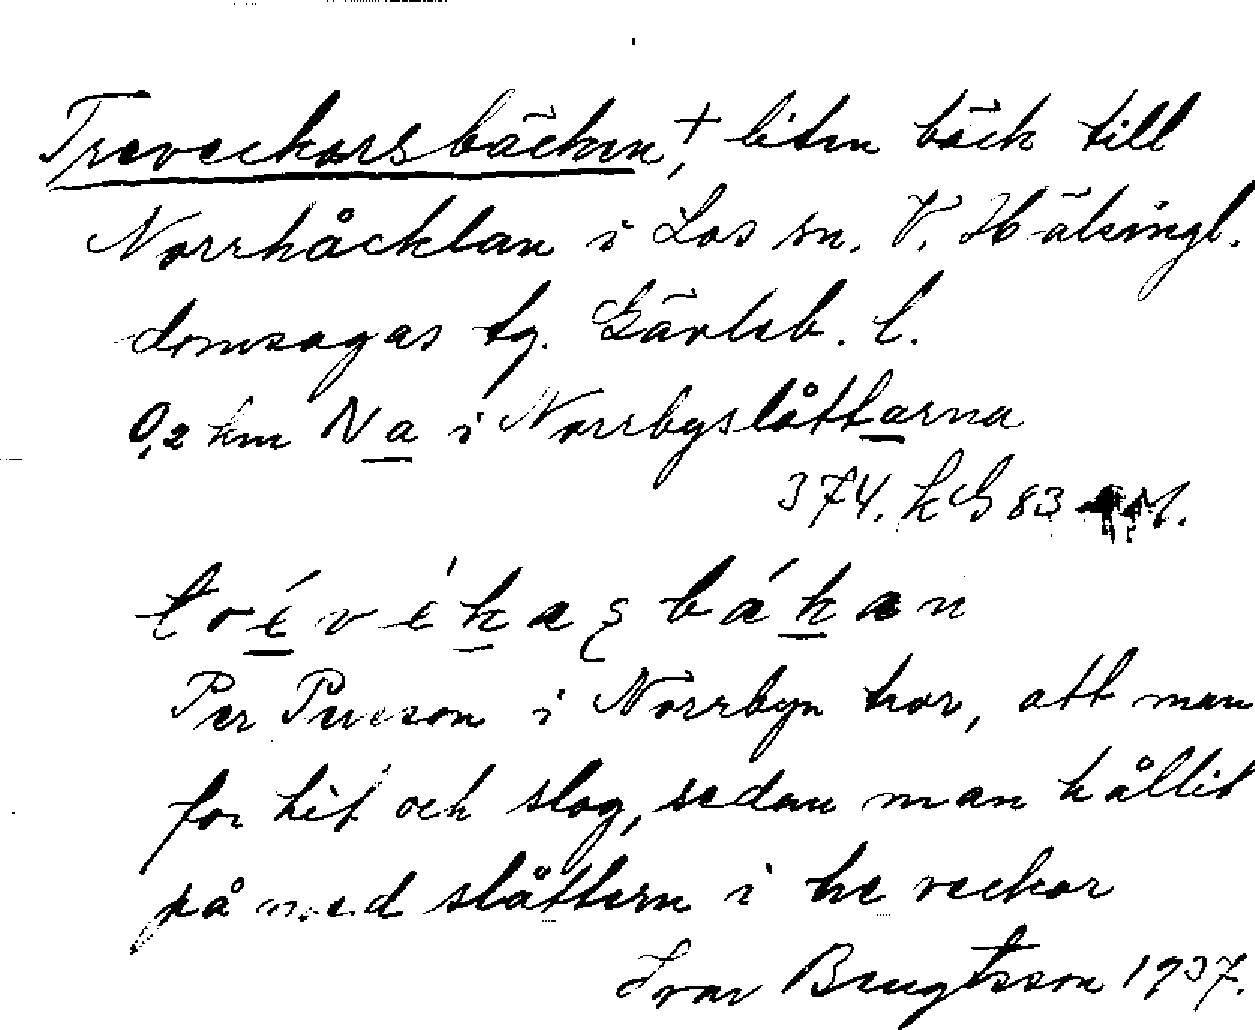 Treveckorsbäcken +, liten bäck till
Norrhåcklan i Los sn. V. Hälsingl.
domsagas tg. Gävleb. l.
0,2 km N a i Norrbyslåttarna
374. k G 83
trévékasbäkan
Per Persson i Norrbyn tror, att man
for hit och slog, sedan man hållit
på med slåttern i tre veckor
Ivar Bengtsson 1937.